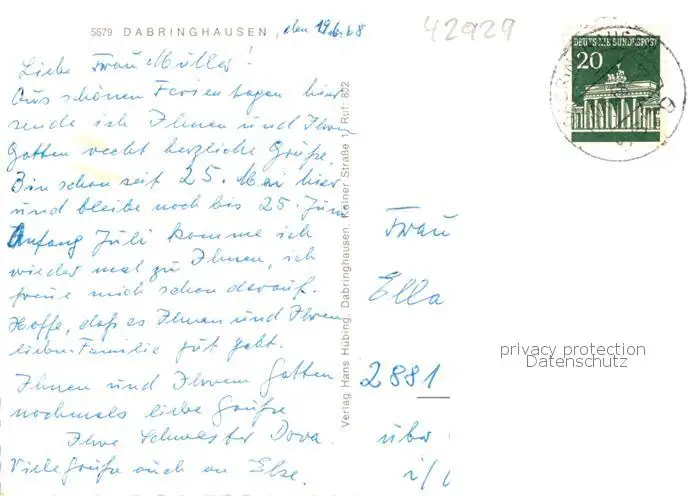 5679 DABRINGHAUSEN, den 19.6.68
42929
Liebe Frau Müller!
Aus schönen Ferientagen hier
sende ich Ihnen und Ihrem
Gatten recht herzliche Grüße.
Bin schon seit 25. Mai hier
und bleibe noch bis 25. Juni
Anfang Juli komme ich
wieder mal zu Ihnen, ich
freue mich schon darauf.
Hoffe, daß es Ihnen und Ihrer
lieben Familie gut geht.
Ihnen und Ihrem Gatten
nochmals liebe Grüße
Ihre Schwester Dora.
Viele Grüße auch an Else.
Verlag Hans Hübing, Dabringhausen, Straße 1, Ruf: 802
DEUTSCHE BUNDESPOST
20
Frau
Ella
2881
über
privacy protection
Datenschutz